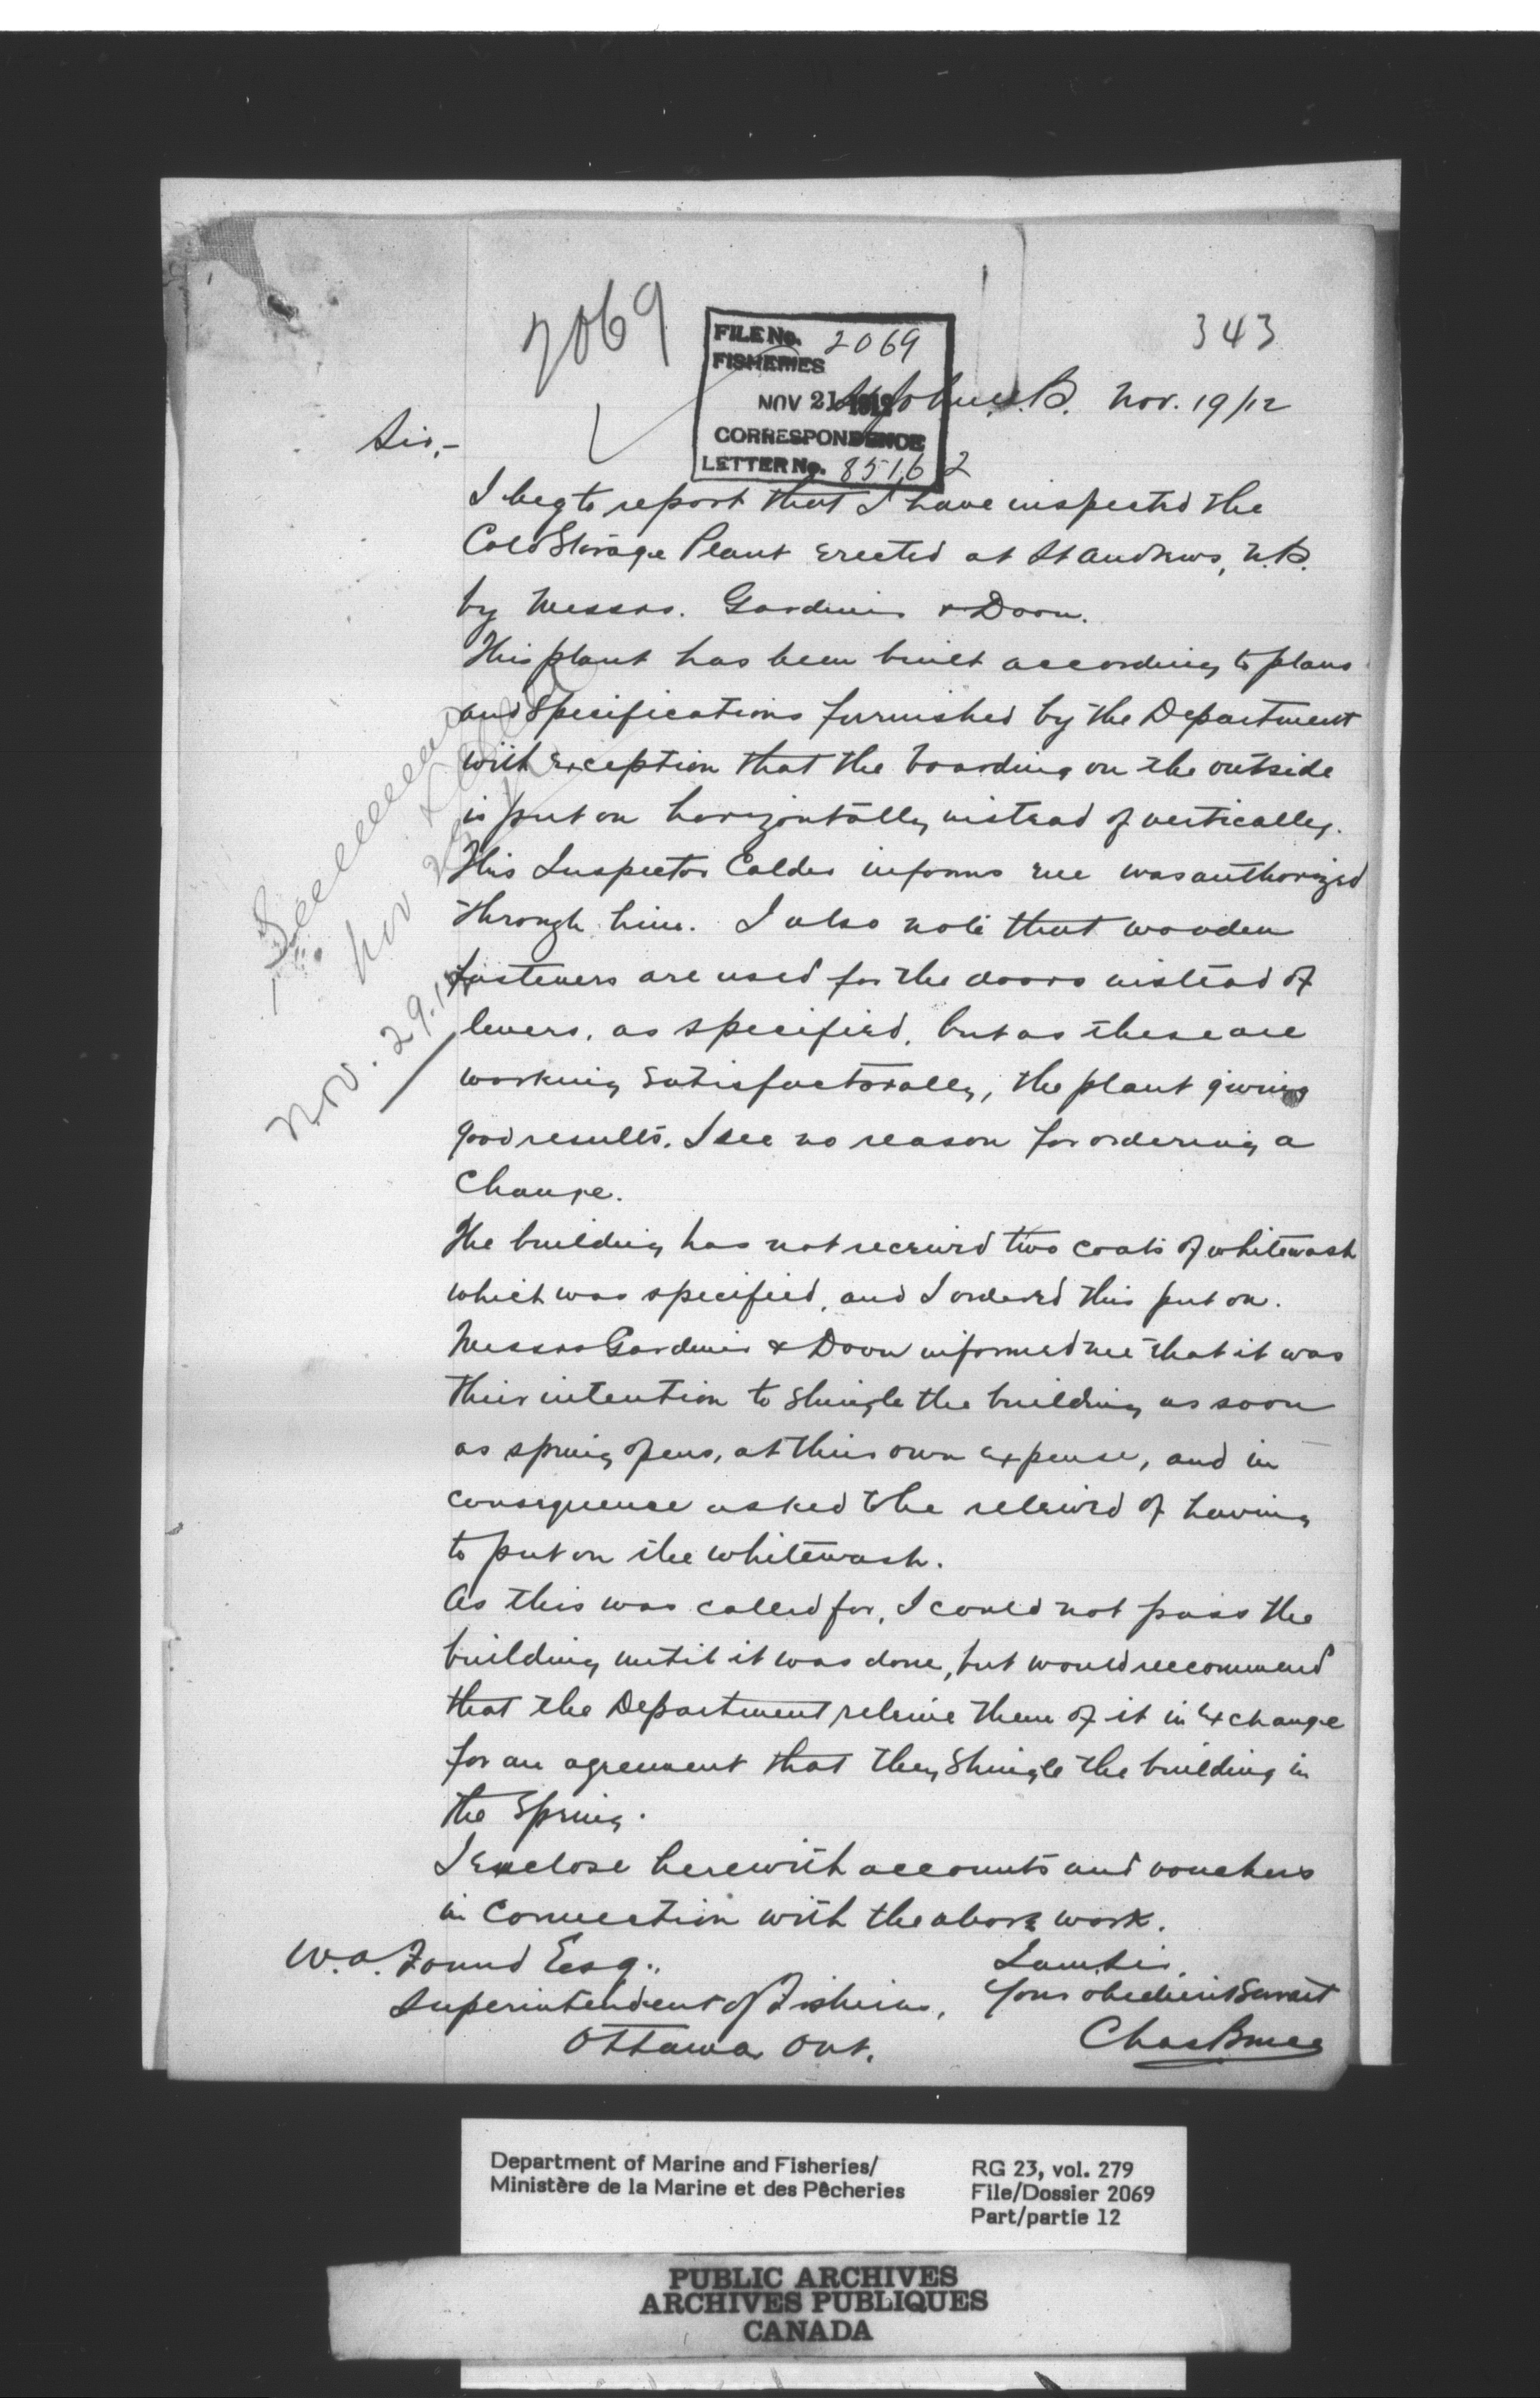 2069
343
FILE No. 2069
FISHERIES
NOV 21 1912
CORRESPONDENCE
LETTER No. 85162
St John N.B. Nov. 19/12
Sir,-
I beg to report that I have inspected the
Cold Storage Plant Erected at St Andrews, N.B.
by Messrs. Gardiner & Doon.
This plant has been built according to plans
and Specifications furnished by the Department
with Exception that the boarding on the outside
is put on horizontally instead of vertically.
This Inspector Calder informs me was authorized
through him. I also note that wooden
fasteners are used for the doors instead of
levers, as specified, but as these are
working satisfactorally, the plant giving
good results, I see no reason for ordering a
Change.
The building has not received two coats of whitewash
which was specified, and I ordered this put on.
Messrs Gardiner & Doon informed me that it was
their intention to shingle the building as soon
as spring opens, at their own expense, and in
consequence asked to be releived of having
to put on the whitewash.
As this was called for, I could not pass the
building until it was done, but would recommend
that the Department releive them of it in Exchange
for an agreement that they Shingle the building in
the Spring.
I Enclose herewith accounts and vouchers
in Connection with the above work.
I am, Sir,
Your obedient Servant
Chas Bruce
W.A. Found Esq.,
Superintendent of Fisheries,
Ottawa Ont.
Nov. 29.12
Department of Marine and Fisheries/
Ministère de la Marine et des Pêcheries
RG 23, vol. 279
File/Dossier 2069
Part/partie 12
PUBLIC ARCHIVES
ARCHIVES PUBLIQUES
CANADA